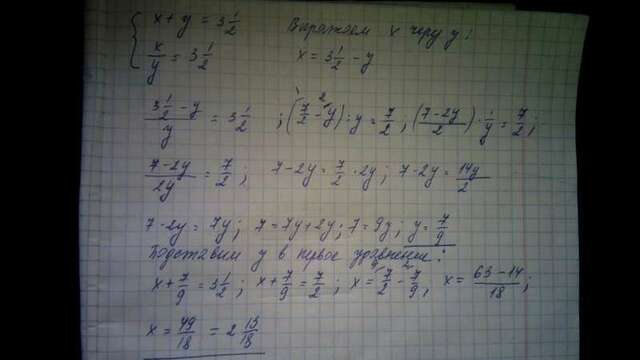 x + y = 3 1/2 Выражаем x через y:
x/y = 3 1/2 x = 3 1/2 - y
(3 1/2 - y)/y = 3 1/2 ; (7/2 - y) : y = 7/2 ; ((7-2y)/2) · 1/y = 7/2 ;
(7-2y)/2y = 7/2 ; 7-2y = 7/2 · 2y ; 7-2y = 14y/2
7-2y = 7y ; 7 = 7y + 2y ; 7 = 9y ; y = 7/9
Подставим y в первое уравнение:
x + 7/9 = 3 1/2 ; x + 7/9 = 7/2 ; x = 7/2 - 7/9 , x = (63-14)/18 ;
x = 49/18 = 2 13/18